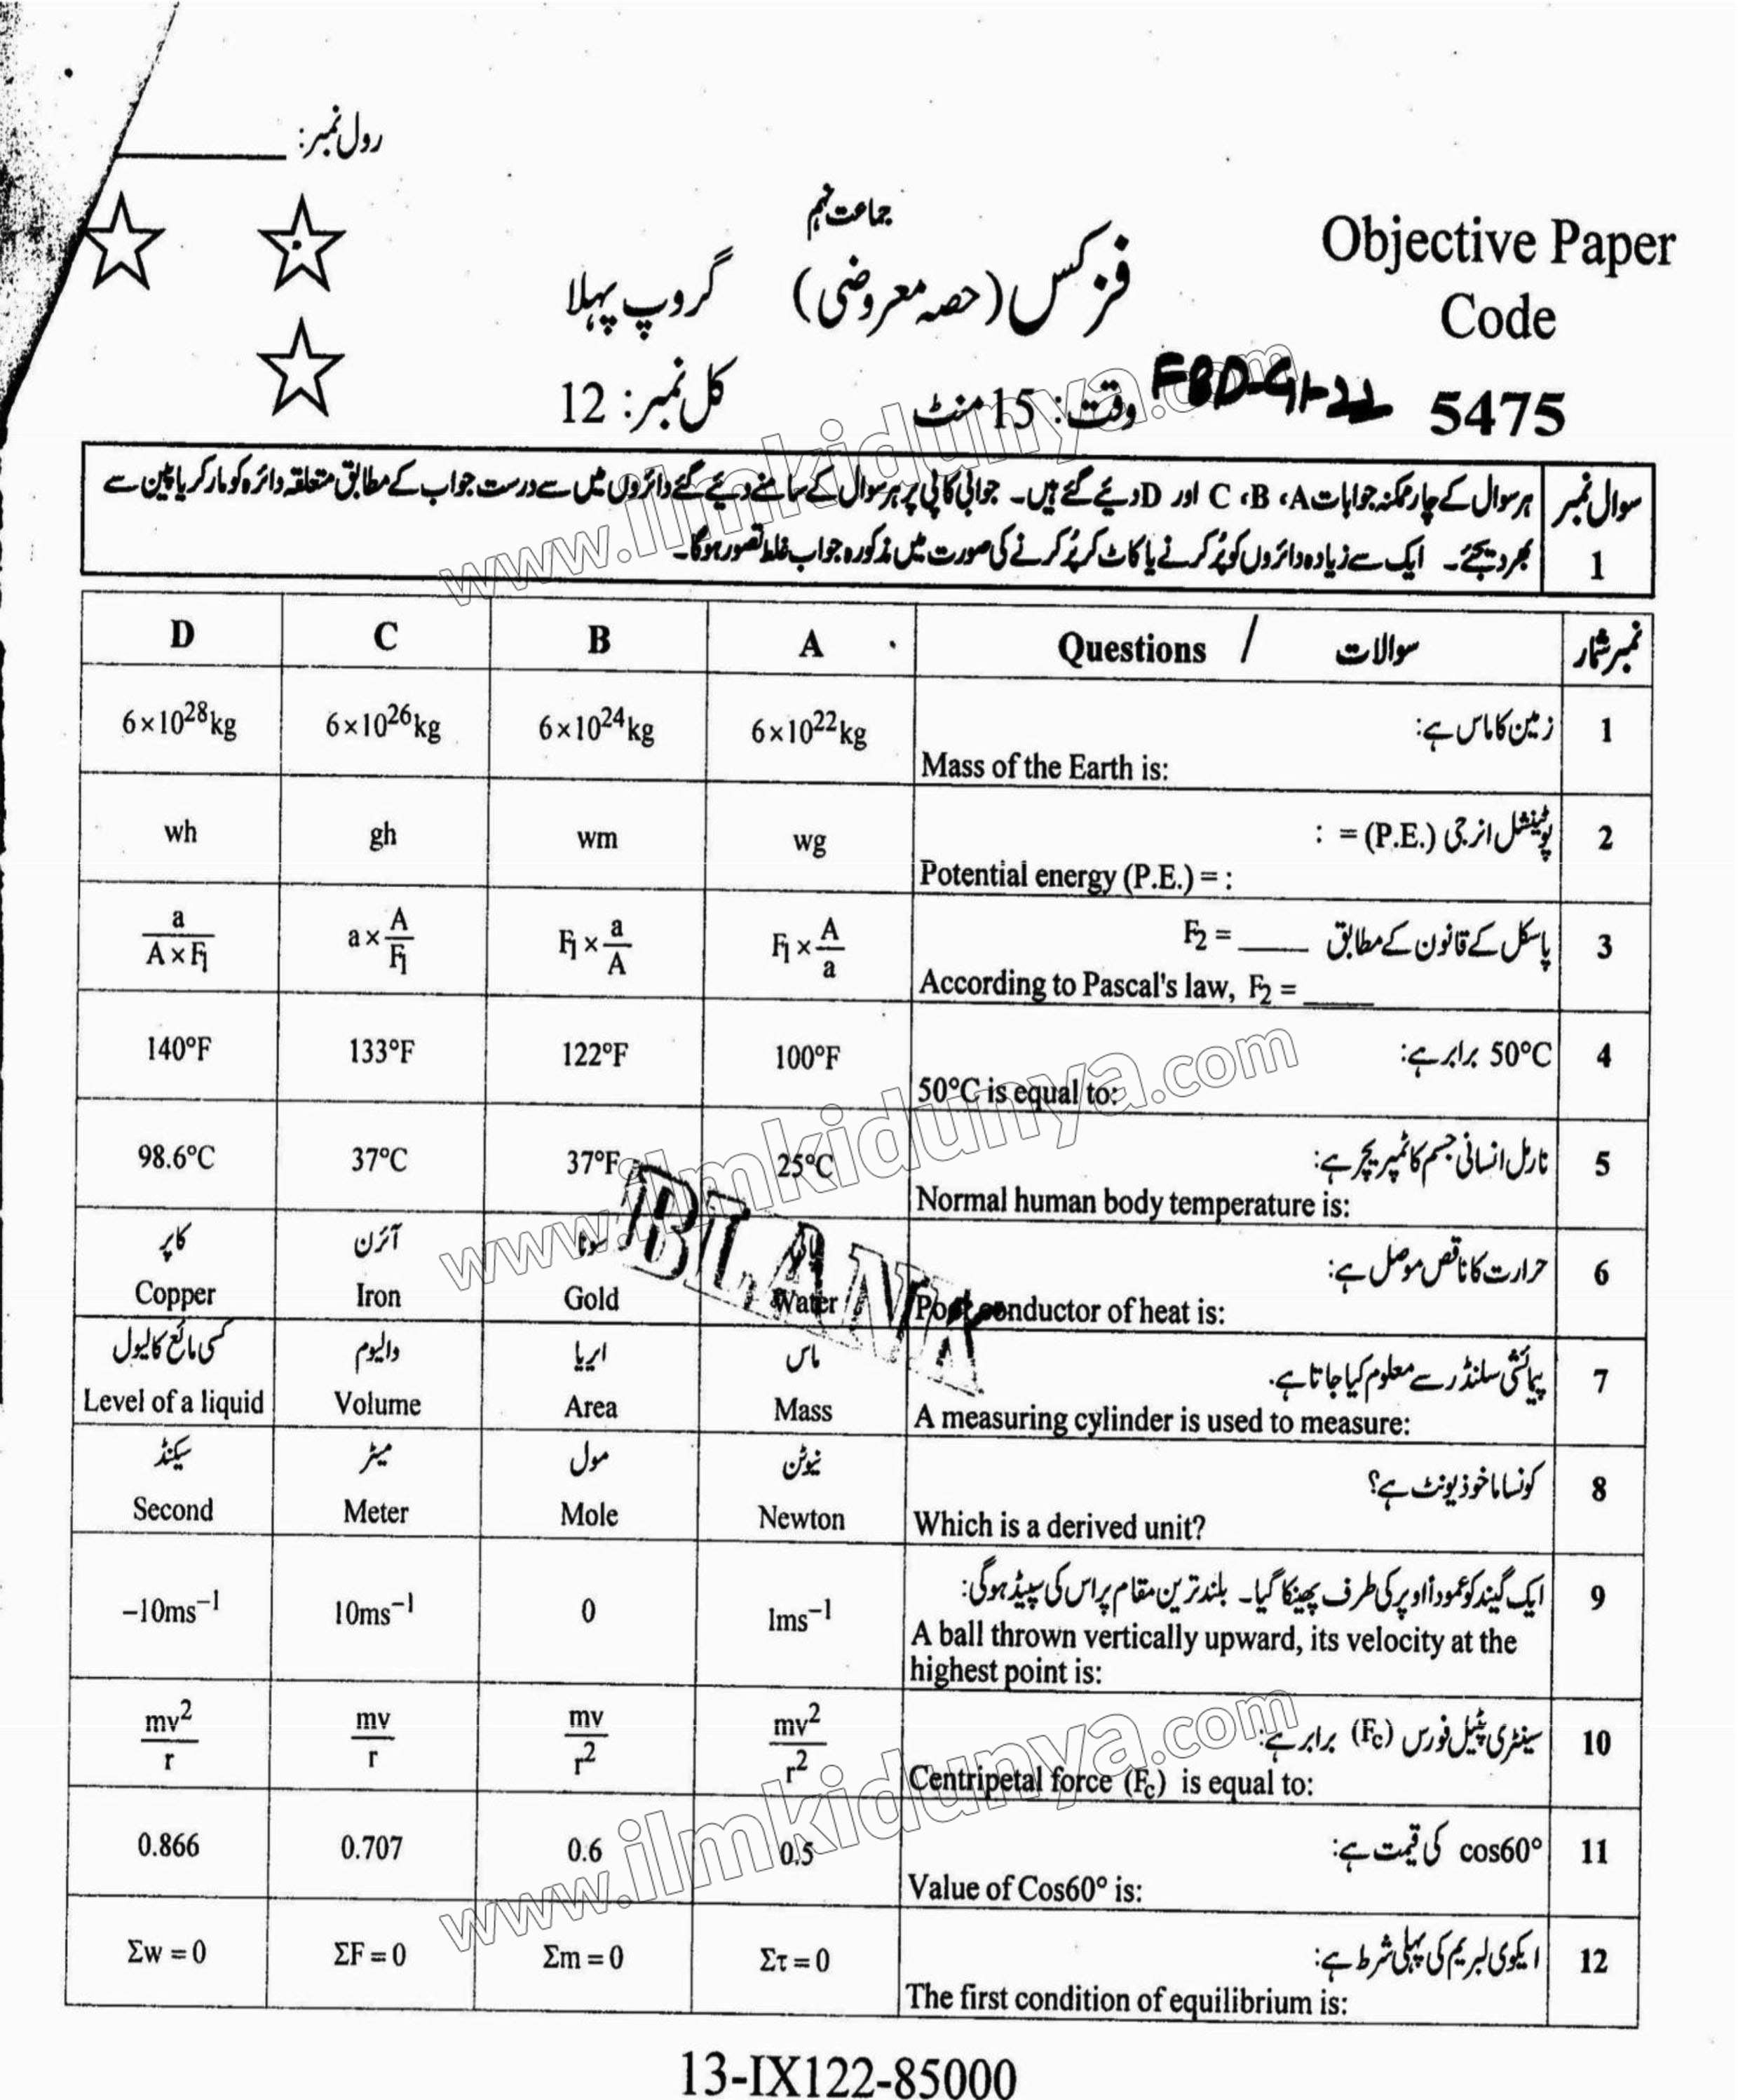 رول نمبر:
جماعت نہم
Objective Paper
Code
5475
فزکس (حصہ معروضی) گروپ پہلا
FBD-G1-22
وقت: 15 منٹ کل نمبر: 12
سوال نمبر 1
ہر سوال کے چار ممکنہ جوابات A، B، C اور D دیئے گئے ہیں۔ جوابی کاپی پر ہر سوال کے سامنے دیئے گئے دائروں میں سے درست جواب کے مطابق متعلقہ دائرہ کو مارکر یا پین سے
بھر دیجئے۔ ایک سے زیادہ دائروں کو پُر کرنے یا کاٹ کر پُر کرنے کی صورت میں مذکورہ جواب غلط تصور ہوگا۔
D C B A Questions / سوالات نمبر شمار
6×10²⁸kg 6×10²⁶kg 6×10²⁴kg 6×10²²kg زمین کا ماس ہے: 1
Mass of the Earth is:
wh gh wm wg پوٹینشل انرجی (P.E.) = : 2
Potential energy (P.E.) = :
a/(A × F₁) a × A/F₁ F₁ × a/A F₁ × A/a پاسکل کے قانون کے مطابق F₂ = ____ 3
According to Pascal's law, F₂ = ____
140°F 133°F 122°F 100°F 50°C برابر ہے: 4
50°C is equal to:
98.6°C 37°C 37°F 25°C نارمل انسانی جسم کا ٹمپریچر ہے: 5
Normal human body temperature is:
کاپر آئرن سونا پانی حرارت کا ناقص موصل ہے: 6
Copper Iron Gold Water Poor conductor of heat is:
کسی مائع کا لیول والیوم ایریا ماس پیمائشی سلنڈر سے معلوم کیا جاتا ہے. 7
Level of a liquid Volume Area Mass A measuring cylinder is used to measure:
سیکنڈ میٹر مول نیوٹن کونسا ماخوذ یونٹ ہے؟ 8
Second Meter Mole Newton Which is a derived unit?
−10ms⁻¹ 10ms⁻¹ 0 1ms⁻¹ ایک گیند کو عموداً اوپر کی طرف پھینکا گیا۔ بلند ترین مقام پر اس کی سپیڈ ہوگی: 9
A ball thrown vertically upward, its velocity at the
highest point is:
mv²/r mv/r mv/r² mv²/r² سینٹری پیٹل فورس (Fc) برابر ہے: 10
Centripetal force (Fc) is equal to:
0.866 0.707 0.6 0.5 cos60° کی قیمت ہے: 11
Value of Cos60° is:
Σw = 0 ΣF = 0 Σm = 0 Στ = 0 ایکوی لبریم کی پہلی شرط ہے: 12
The first condition of equilibrium is:
13-IX122-85000
www.ilmkidunya.com
www.ilmkidunya.com
www.ilmkidunya.com